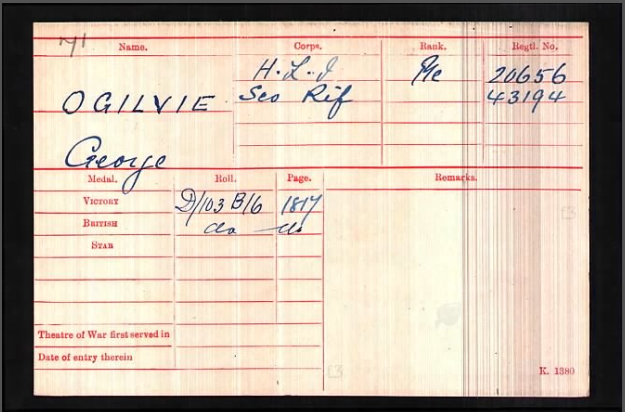 Name. Corps. Rank. Regtl. No.
H.L.I. Pte 20656
OGILVIE Sco Rif 43194
George
Medal. Roll. Page. Remarks.
VICTORY D/103 B/6 1817
BRITISH do do
STAR
Theatre of War first served in
Date of entry therein
K. 1380